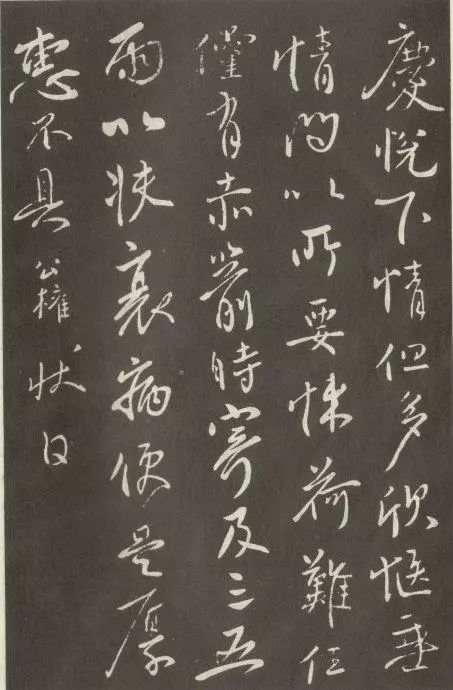 慶悅下情但多欣愜垂
情問以所要悚荷難任
儻有赤箭時寄及三五
兩以扶衰病便是厚
惠不具公權狀白